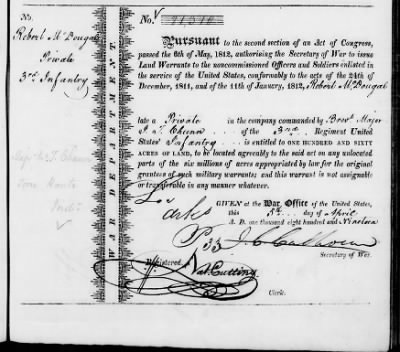 No.
Robert McDougal
Private
3rd Infantry
No.
WAR DEPARTMENT.
Pursuant to the second section of an Act of Congress,
passed the 6th of May, 1812, authorising the Secretary of War to issue
Land Warrants to the noncommissioned Officers and Soldiers enlisted in
the service of the United States, conformably to the acts of the 24th of
December, 1811, and of the 11th of January, 1812, Robert McDougal
late a Private in the company commanded by Brevt Major
J. T. Chunn of the 3rd Regiment United
States' Infantry is entitled to ONE HUNDRED AND SIXTY
ACRES OF LAND, to be located agreeably to the said act on any unlocated
parts of the six millions of acres appropriated by law for the original
grantees of such military warrants; and this warrant is not assignable
or transferable in any manner whatever.
GIVEN at the War Office of the United States,
this 5th day of April
A. D. one thousand eight hundred and Nineteen
J. C. Calhoun
Secretary of War.
Registered
Nat. Cutting
Clerk.